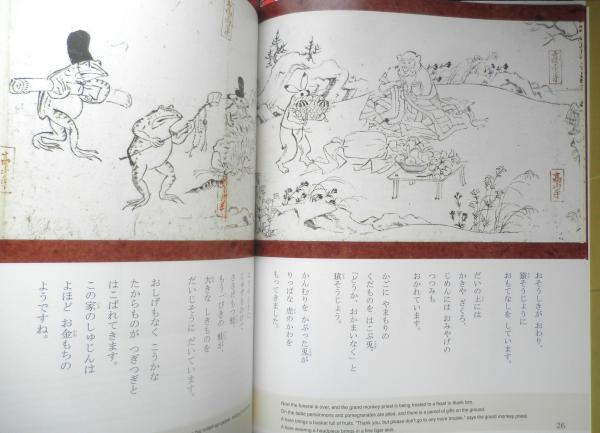 おそうしきが おわり、
猿そうじょうに
おもてなしを しています。
だいの上には
かきや ざくろ、
じめんには おみやげの
つつみも
おかれています。
かごに やまもりの
くだものを はこぶ兎に
「どうか、おかまいなく」と
猿そうじょう。
かんむりを かぶった兎が
りっぱな 虎のかわを
もってきました。
もう一ぴきの 蛙が、
大きな しきものを
だいじそうに だいています。
おしげもなく こうかな
たからものが つぎつぎと
はこばれてきます。
この家のしゅじんは
よほど お金もちの
ようですね。
Now the funeral is over, and the grand monkey priest is being treated to a feast to thank him.
On the table persimmons and pomegranates are piled, and there is a parcel of gifts on the ground.
A hare brings a basket full of fruits. "Thank you, but please don't go to any more trouble," says the grand monkey priest.
A hare wearing a headpiece brings in a fine tiger skin.
26